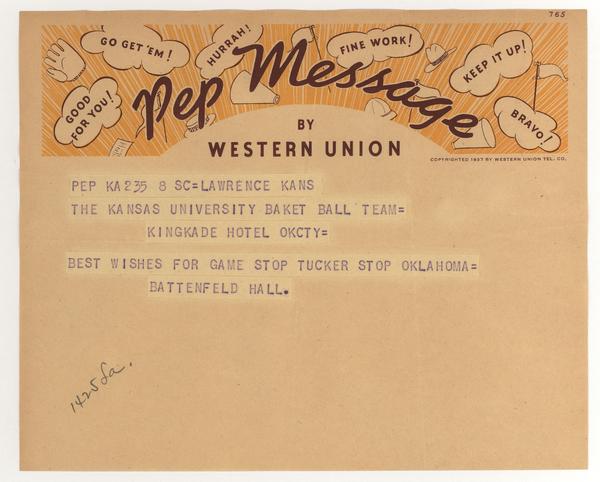 765
GO GET 'EM!
HURRAH!
FINE WORK!
KEEP IT UP!
GOOD FOR YOU!
BRAVO!
Pep Message
BY
WESTERN UNION
COPYRIGHTED 1937 BY WESTERN UNION TEL. CO.
PEP KA235 8 SC=LAWRENCE KANS
THE KANSAS UNIVERSITY BAKET BALL TEAM=
KINGKADE HOTEL OKCTY=
BEST WISHES FOR GAME STOP TUCKER STOP OKLAHOMA=
BATTENFELD HALL.